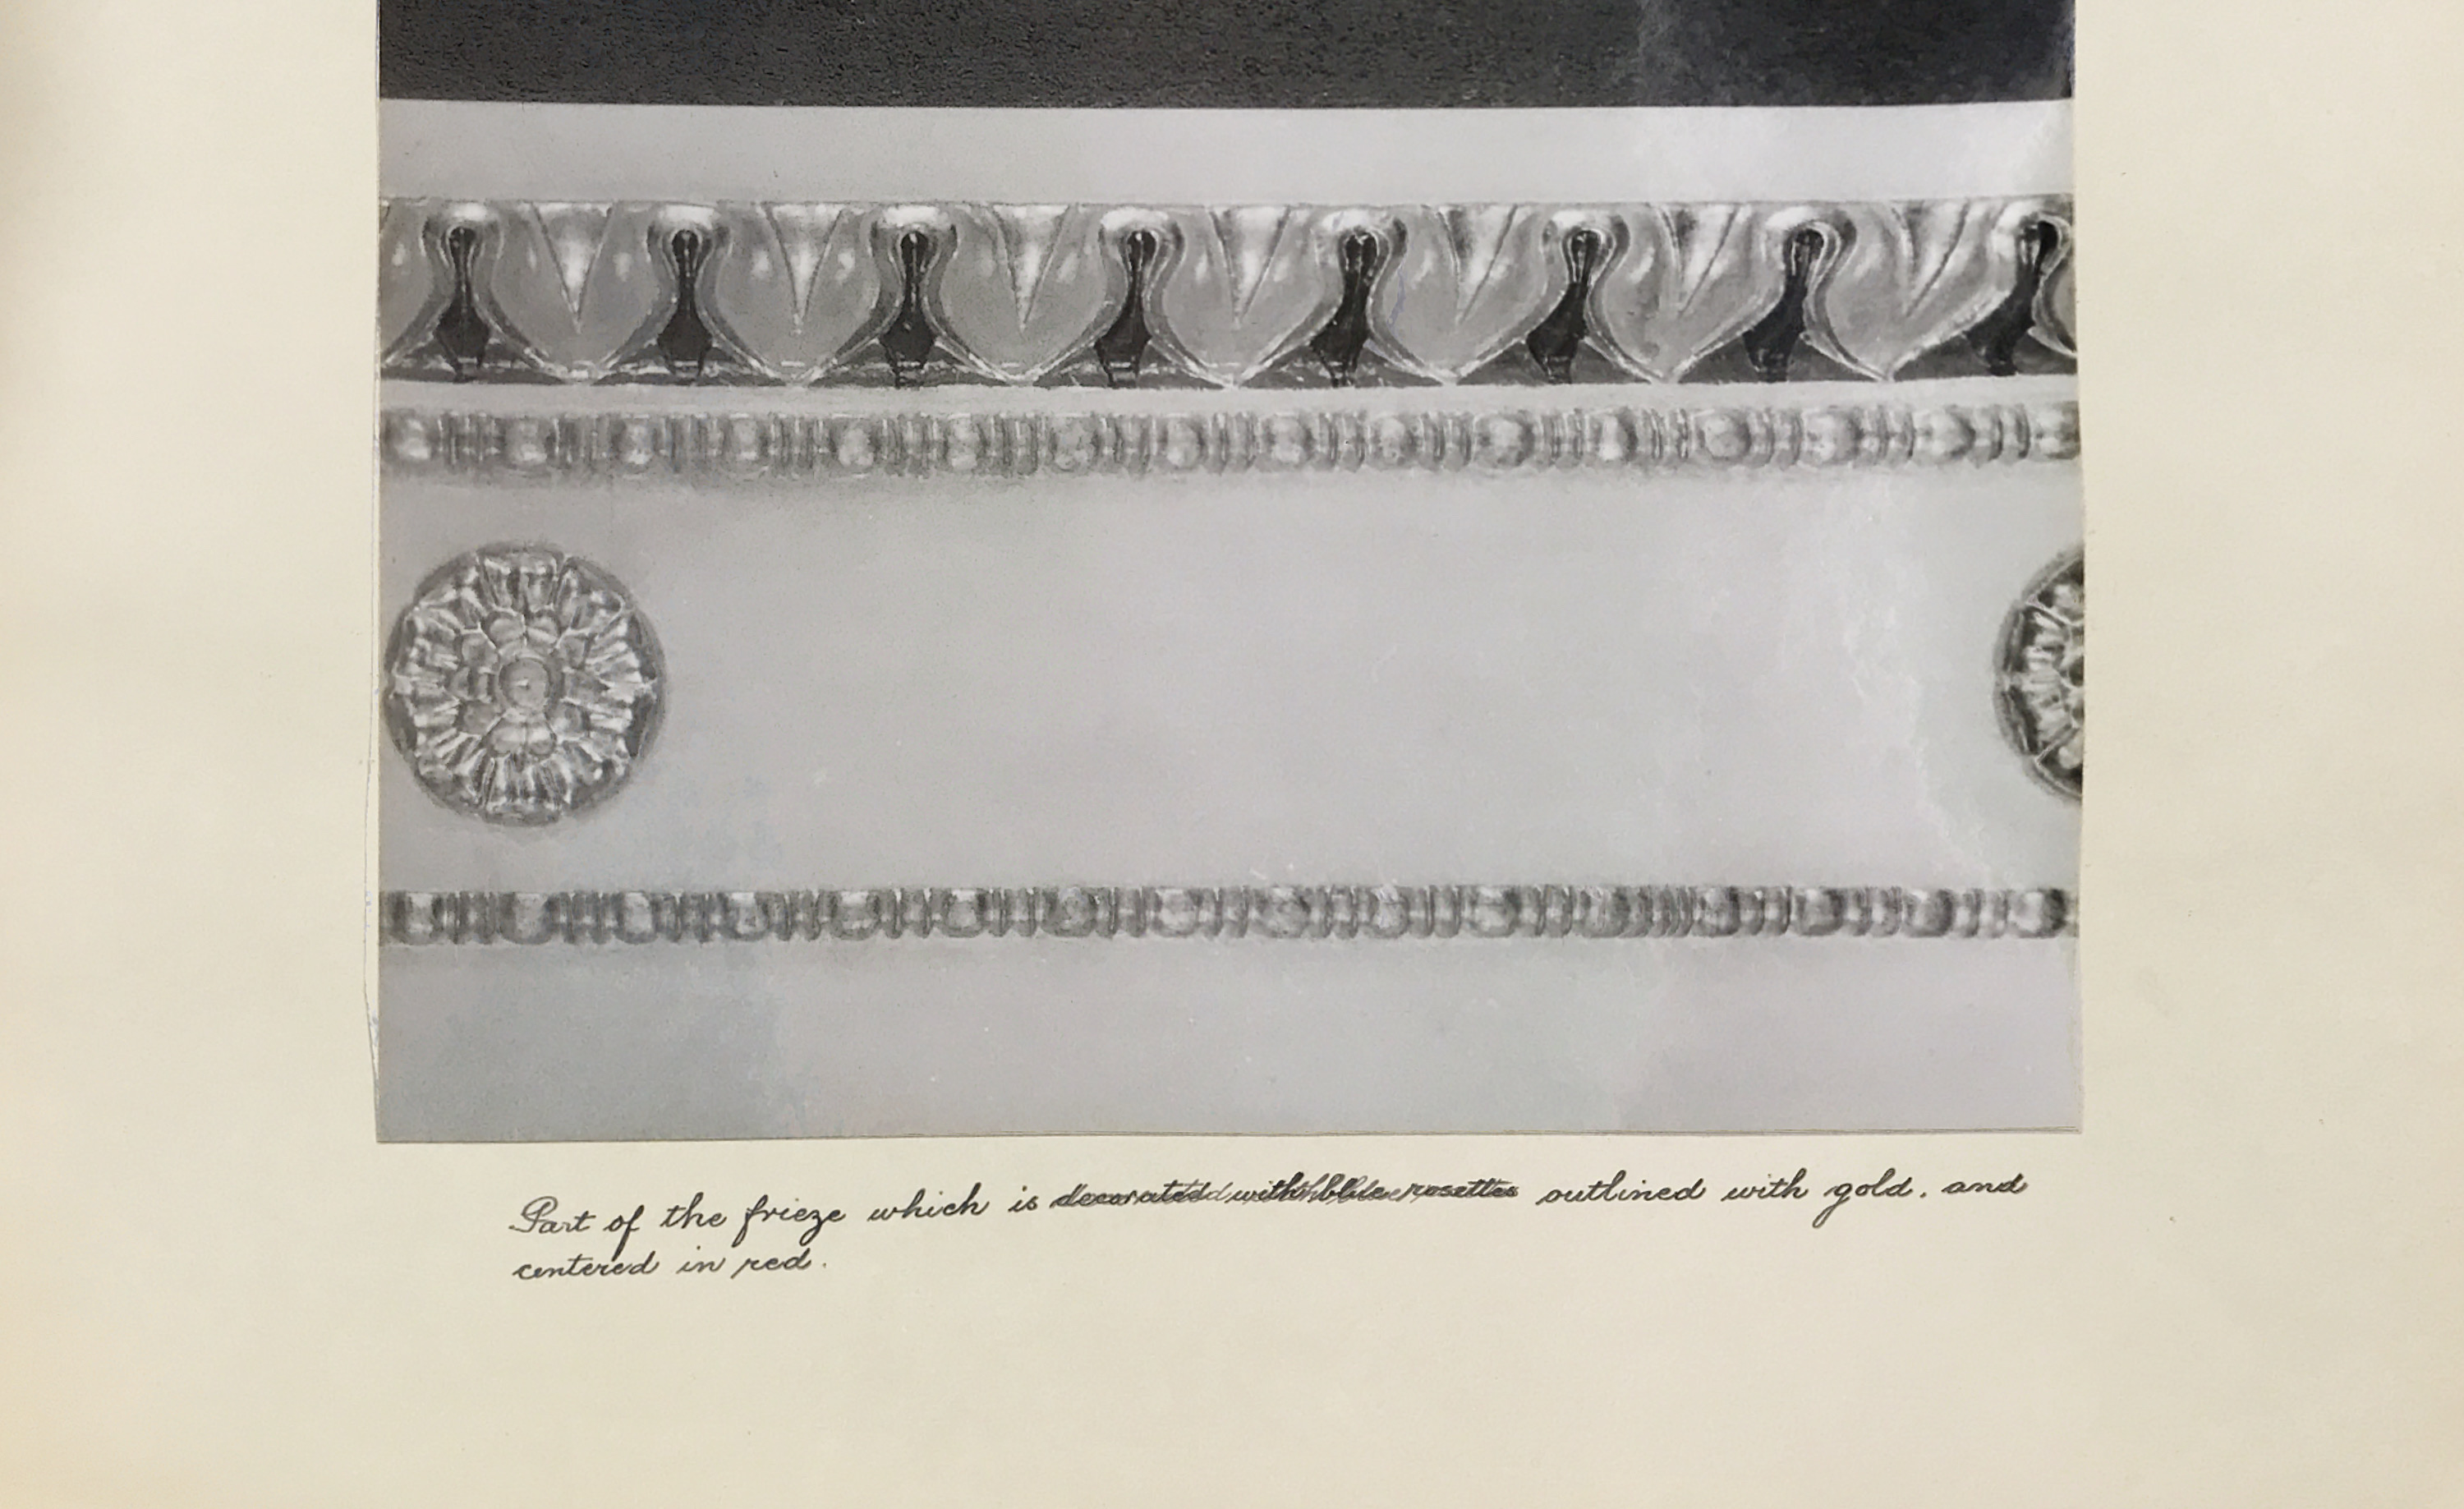 Part of the frieze which is decorated with blue rosettes outlined with gold, and
centered in red.